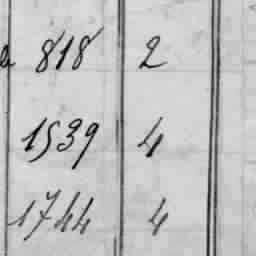 818 2
1539 4
1744 4